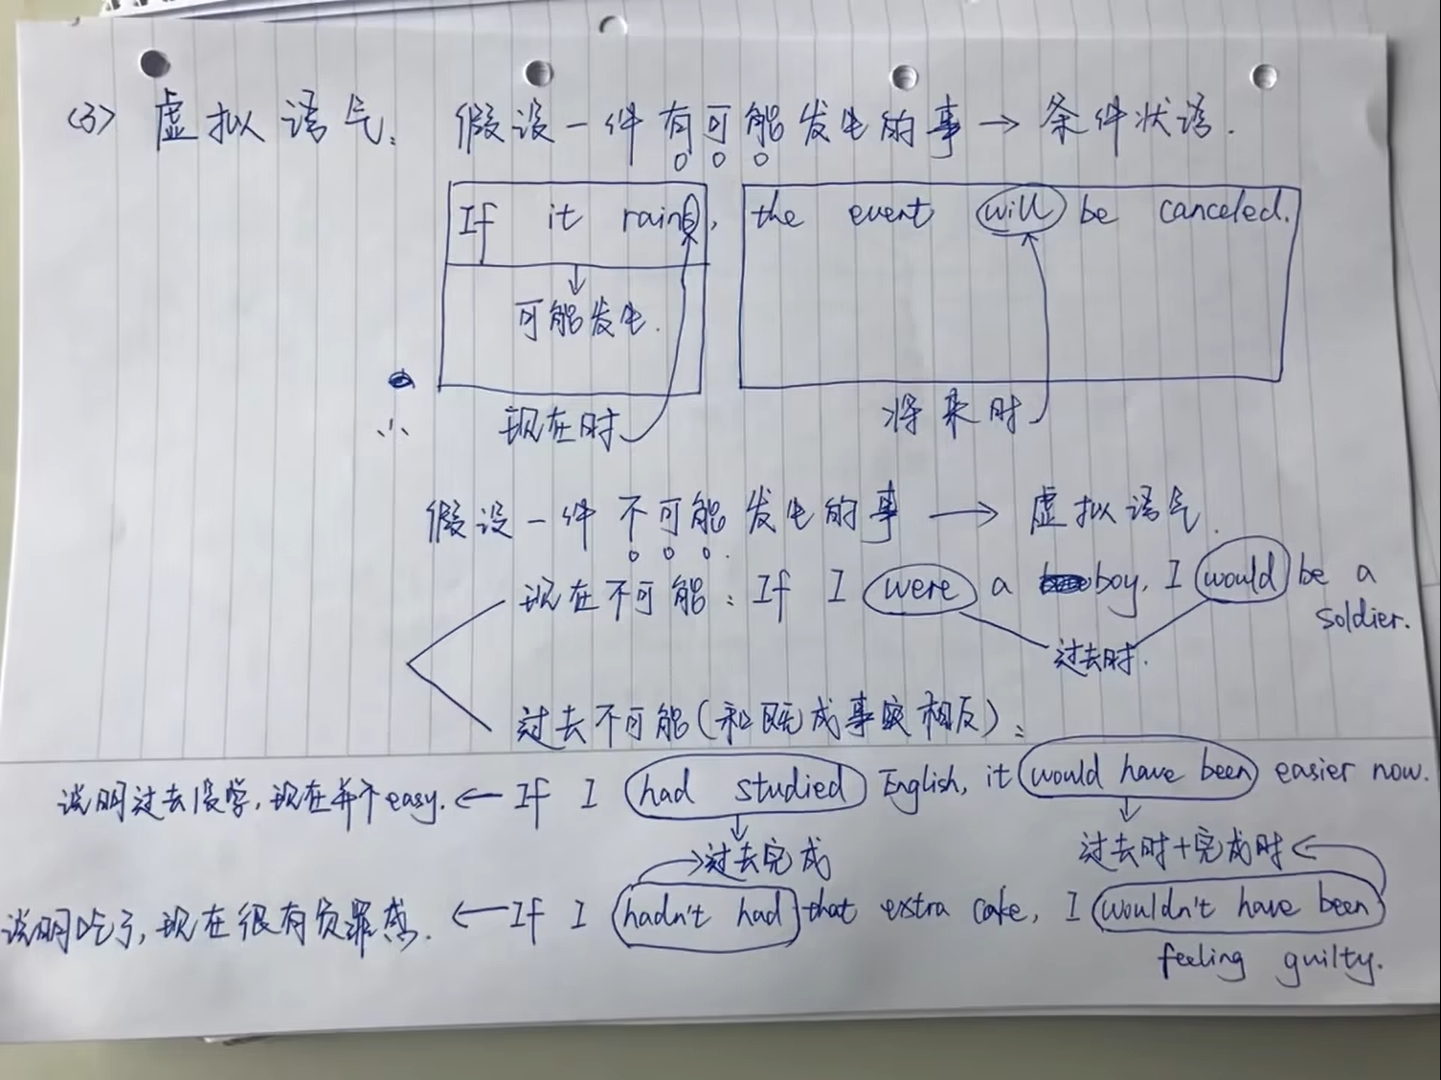 (3) 虚拟语气: 假设一件有可能发生的事→条件状语.
If it rains, the event will be canceled.
可能发生.
现在时 将来时
假设一件不可能发生的事→虚拟语气.
现在不可能: If I were a boy, I would be a
soldier.
过去时.
过去不可能(和既成事实相反):
说明过去没学,现在并不easy.←If I had studied English, it would have been easier now.
过去完成 过去时+完成时
说明吃了,现在很有负罪感.←If I hadn't had that extra cake, I wouldn't have been
feeling guilty.